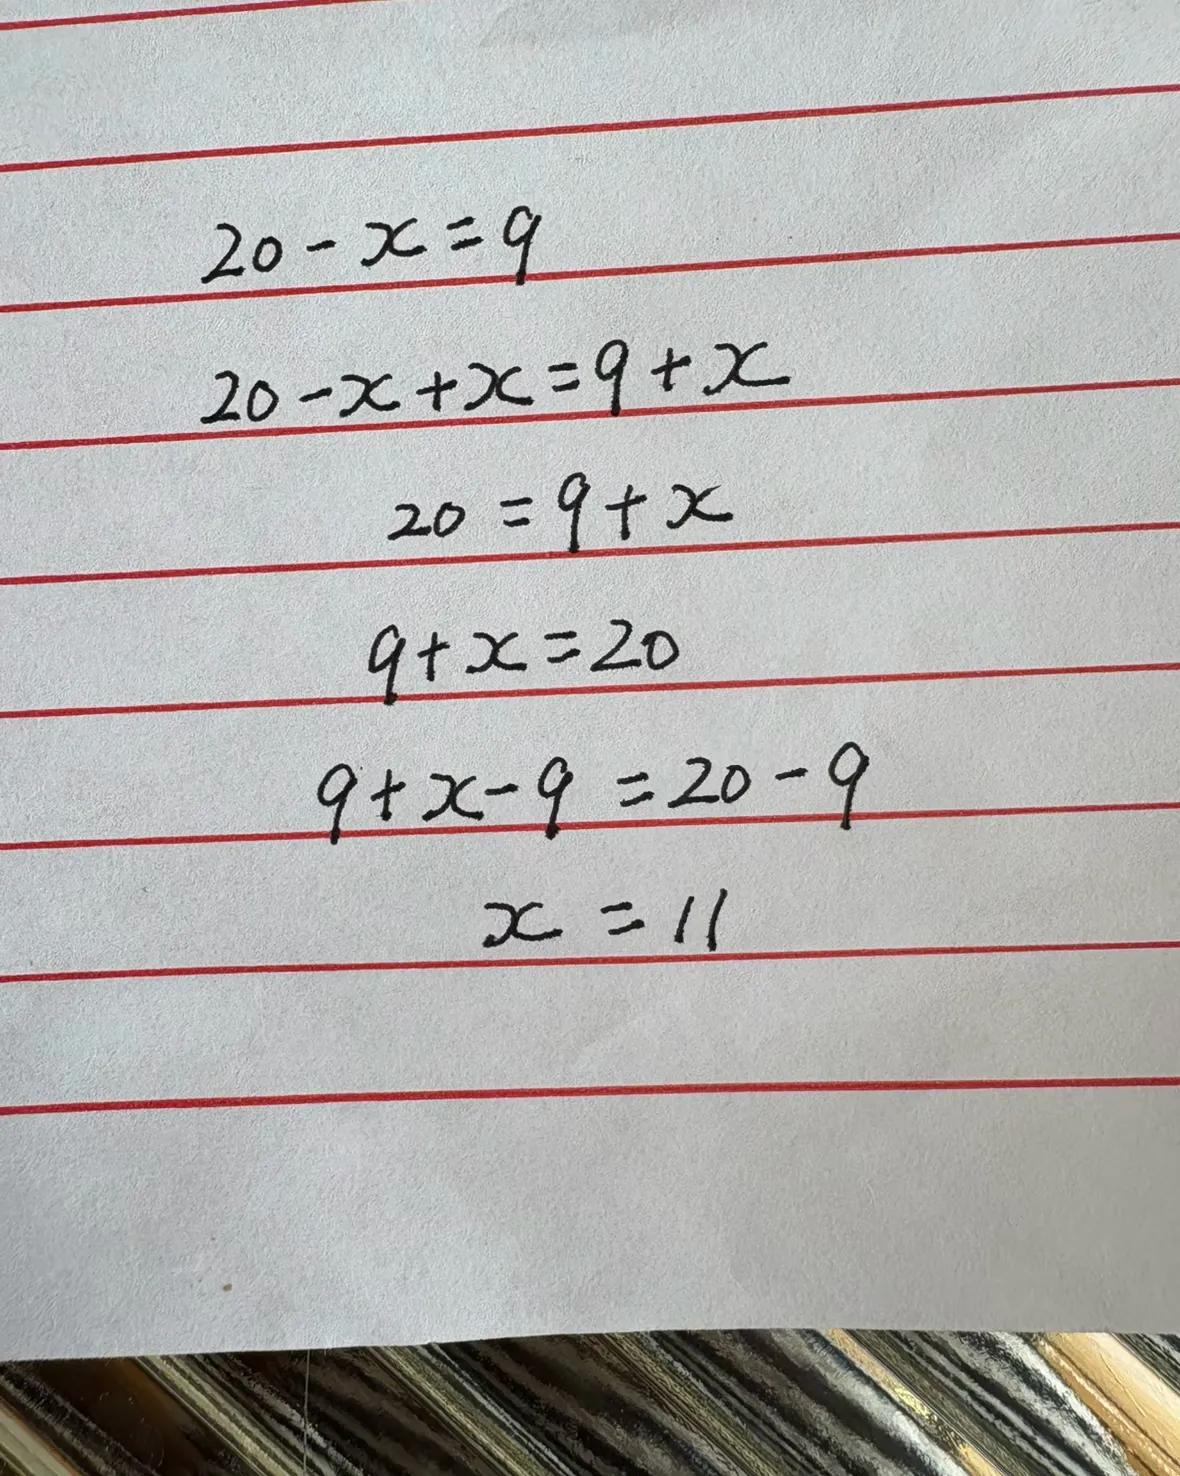 20 - x = 9
20 - x + x = 9 + x
20 = 9 + x
9 + x = 20
9 + x - 9 = 20 - 9
x = 11